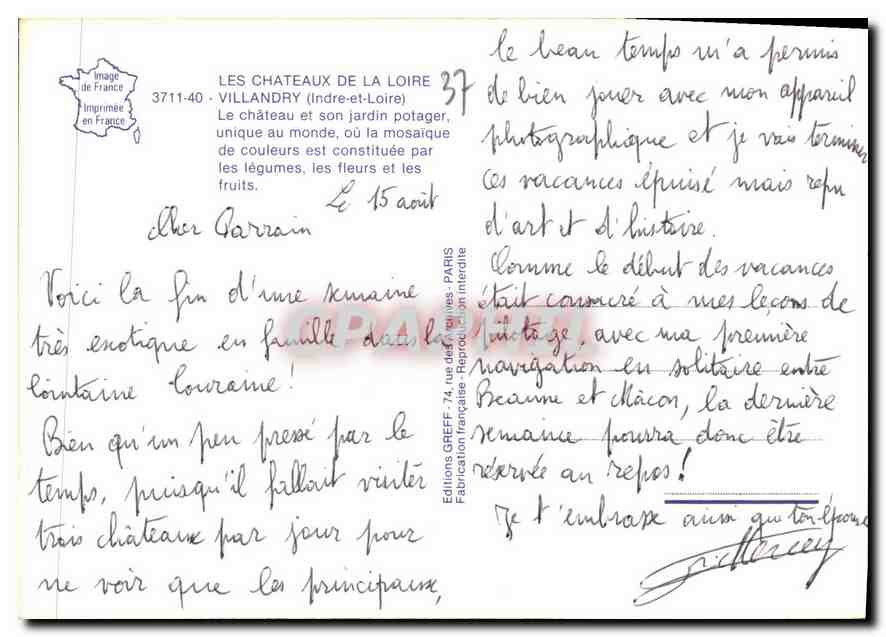 Image
de France
Imprimée
en France
LES CHATEAUX DE LA LOIRE
3711-40 - VILLANDRY (Indre-et-Loire)
Le château et son jardin potager,
unique au monde, où la mosaïque
de couleurs est constituée par
les légumes, les fleurs et les
fruits.
37
Le 15 août
Cher Parrain
Voici la fin d'une semaine
très exotique en famille dans la
lointaine Touraine !
Bien qu'un peu pressé par le
temps, puisqu'il fallait visiter
trois châteaux par jour pour
ne voir que les principaux,
Editions GREFF - 74, rue des Archives - PARIS
Fabrication française - Reproduction interdite
le beau temps m'a permis
de bien jouer avec mon appareil
photographique et je vais terminer
ces vacances épuisé mais repu
d'art et d'histoire.
Comme le début des vacances
était consacré à mes leçons de
pilotage, avec ma première
navigation en solitaire entre
Beaune et Mâcon, la dernière
semaine pourra donc être
réservée au repos !
Je t'embrasse ainsi que ton épouse